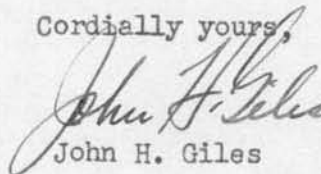 Cordially yours,
John H. Giles
John H. Giles